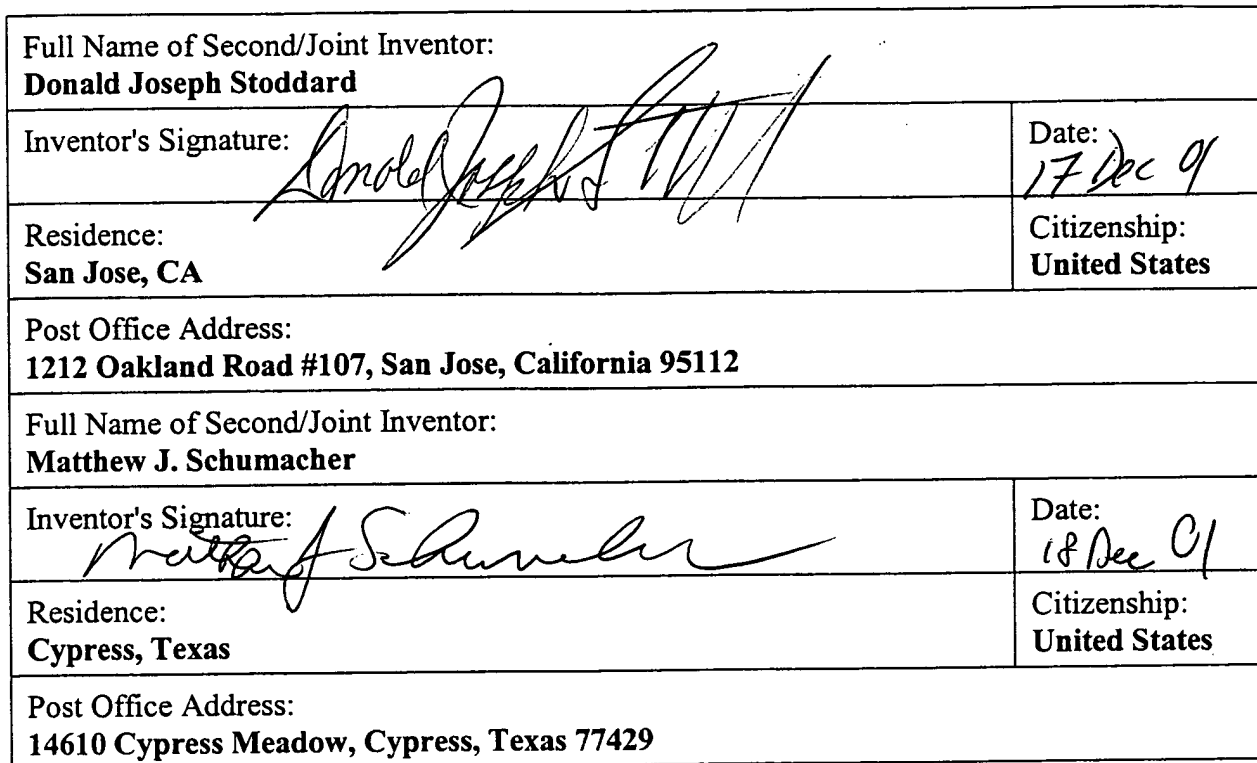 Full Name of Second/Joint Inventor:
Donald Joseph Stoddard
Inventor's Signature: Donald Joseph
Date:
17 Dec 01
Residence:
San Jose, CA
Citizenship:
United States
Post Office Address:
1212 Oakland Road #107, San Jose, California 95112
Full Name of Second/Joint Inventor:
Matthew J. Schumacher
Inventor's Signature:
Matthew J Schumacher
Date:
18 Dec 01
Residence:
Cypress, Texas
Citizenship:
United States
Post Office Address:
14610 Cypress Meadow, Cypress, Texas 77429